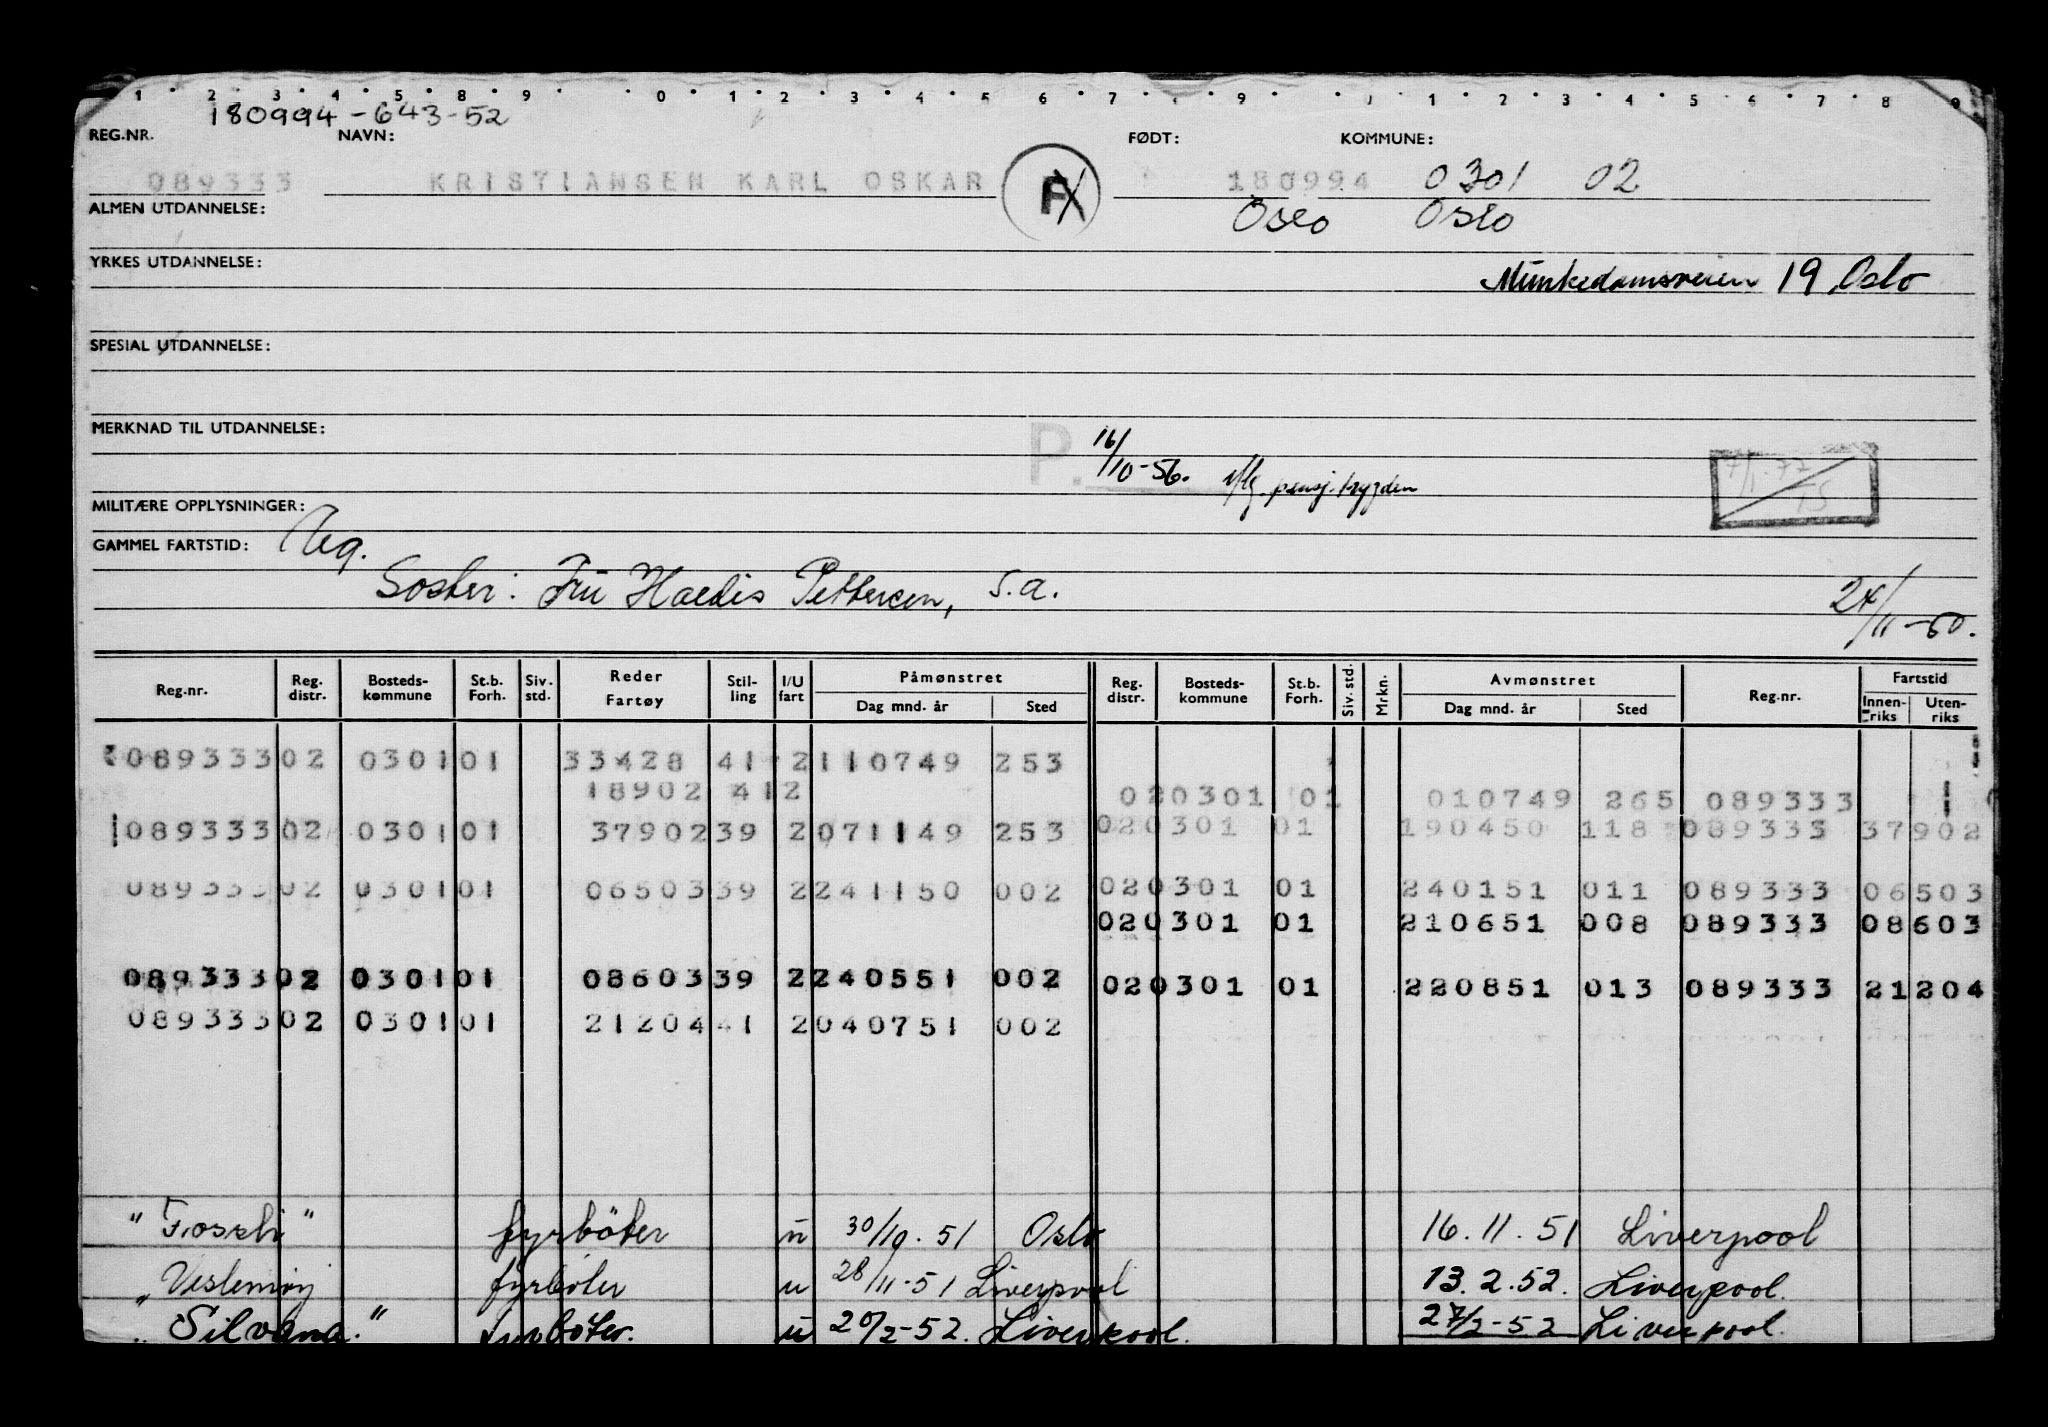 1 2 3 4 5 8 9 0 1 2 3 4 5 6 7 8 9 0 1 2 3 4 5 6 7 8 9
180994-643-52
REG.NR. NAVN: FØDT: KOMMUNE:
089333 KRISTIANSEN KARL OSKAR 180994 0301 02
ALMEN UTDANNELSE: Oslo Oslo
YRKES UTDANNELSE: Munkedamsveien 19, Oslo
SPESIAL UTDANNELSE:
MERKNAD TIL UTDANNELSE: P. 16/10-56. pensj. trygden
7/1-77
TS
MILITÆRE OPPLYSNINGER:
GAMMEL FARTSTID:
Søster: Fru Haldis Pettersen, s.a.
24/11-50.
Reg.nr. Reg. distr. Bosteds-kommune St.b. Forh. Siv. std. Reder Fartøy Stil-ling I/U fart Påmønstret Dag mnd. år Sted Reg. distr. Bosteds-kommune St.b. Forh. Siv. std. Mrkn. Avmønstret Dag mnd. år Sted Reg.nr. Fartstid Innen-riks Uten-riks
089333 02 0301 01 33428 41 2 110749 253
18902 41 2 02 0301 01 010749 265 089333
089333 02 0301 01 37902 39 2 071149 253 02 0301 01 190450 118 089333 37902
089333 02 0301 01 06503 39 2 241150 002 02 0301 01 240151 011 089333 06503
02 0301 01 210651 008 089333 08603
089333 02 0301 01 08603 39 2 240551 002 02 0301 01 220851 013 089333 21204
089333 02 0301 01 21204 41 2 040751 002
"Fossli" fyrbøter u 30/10.51 Oslo 16.11.51 Liverpool
"Veslemøy fyrbøter u 28/11-51 Liverpool 13.2.52. Liverpool.
"Silvana." fyrbøter. u 20/2-52. Liverpool. 27/2-52 Liverpool.